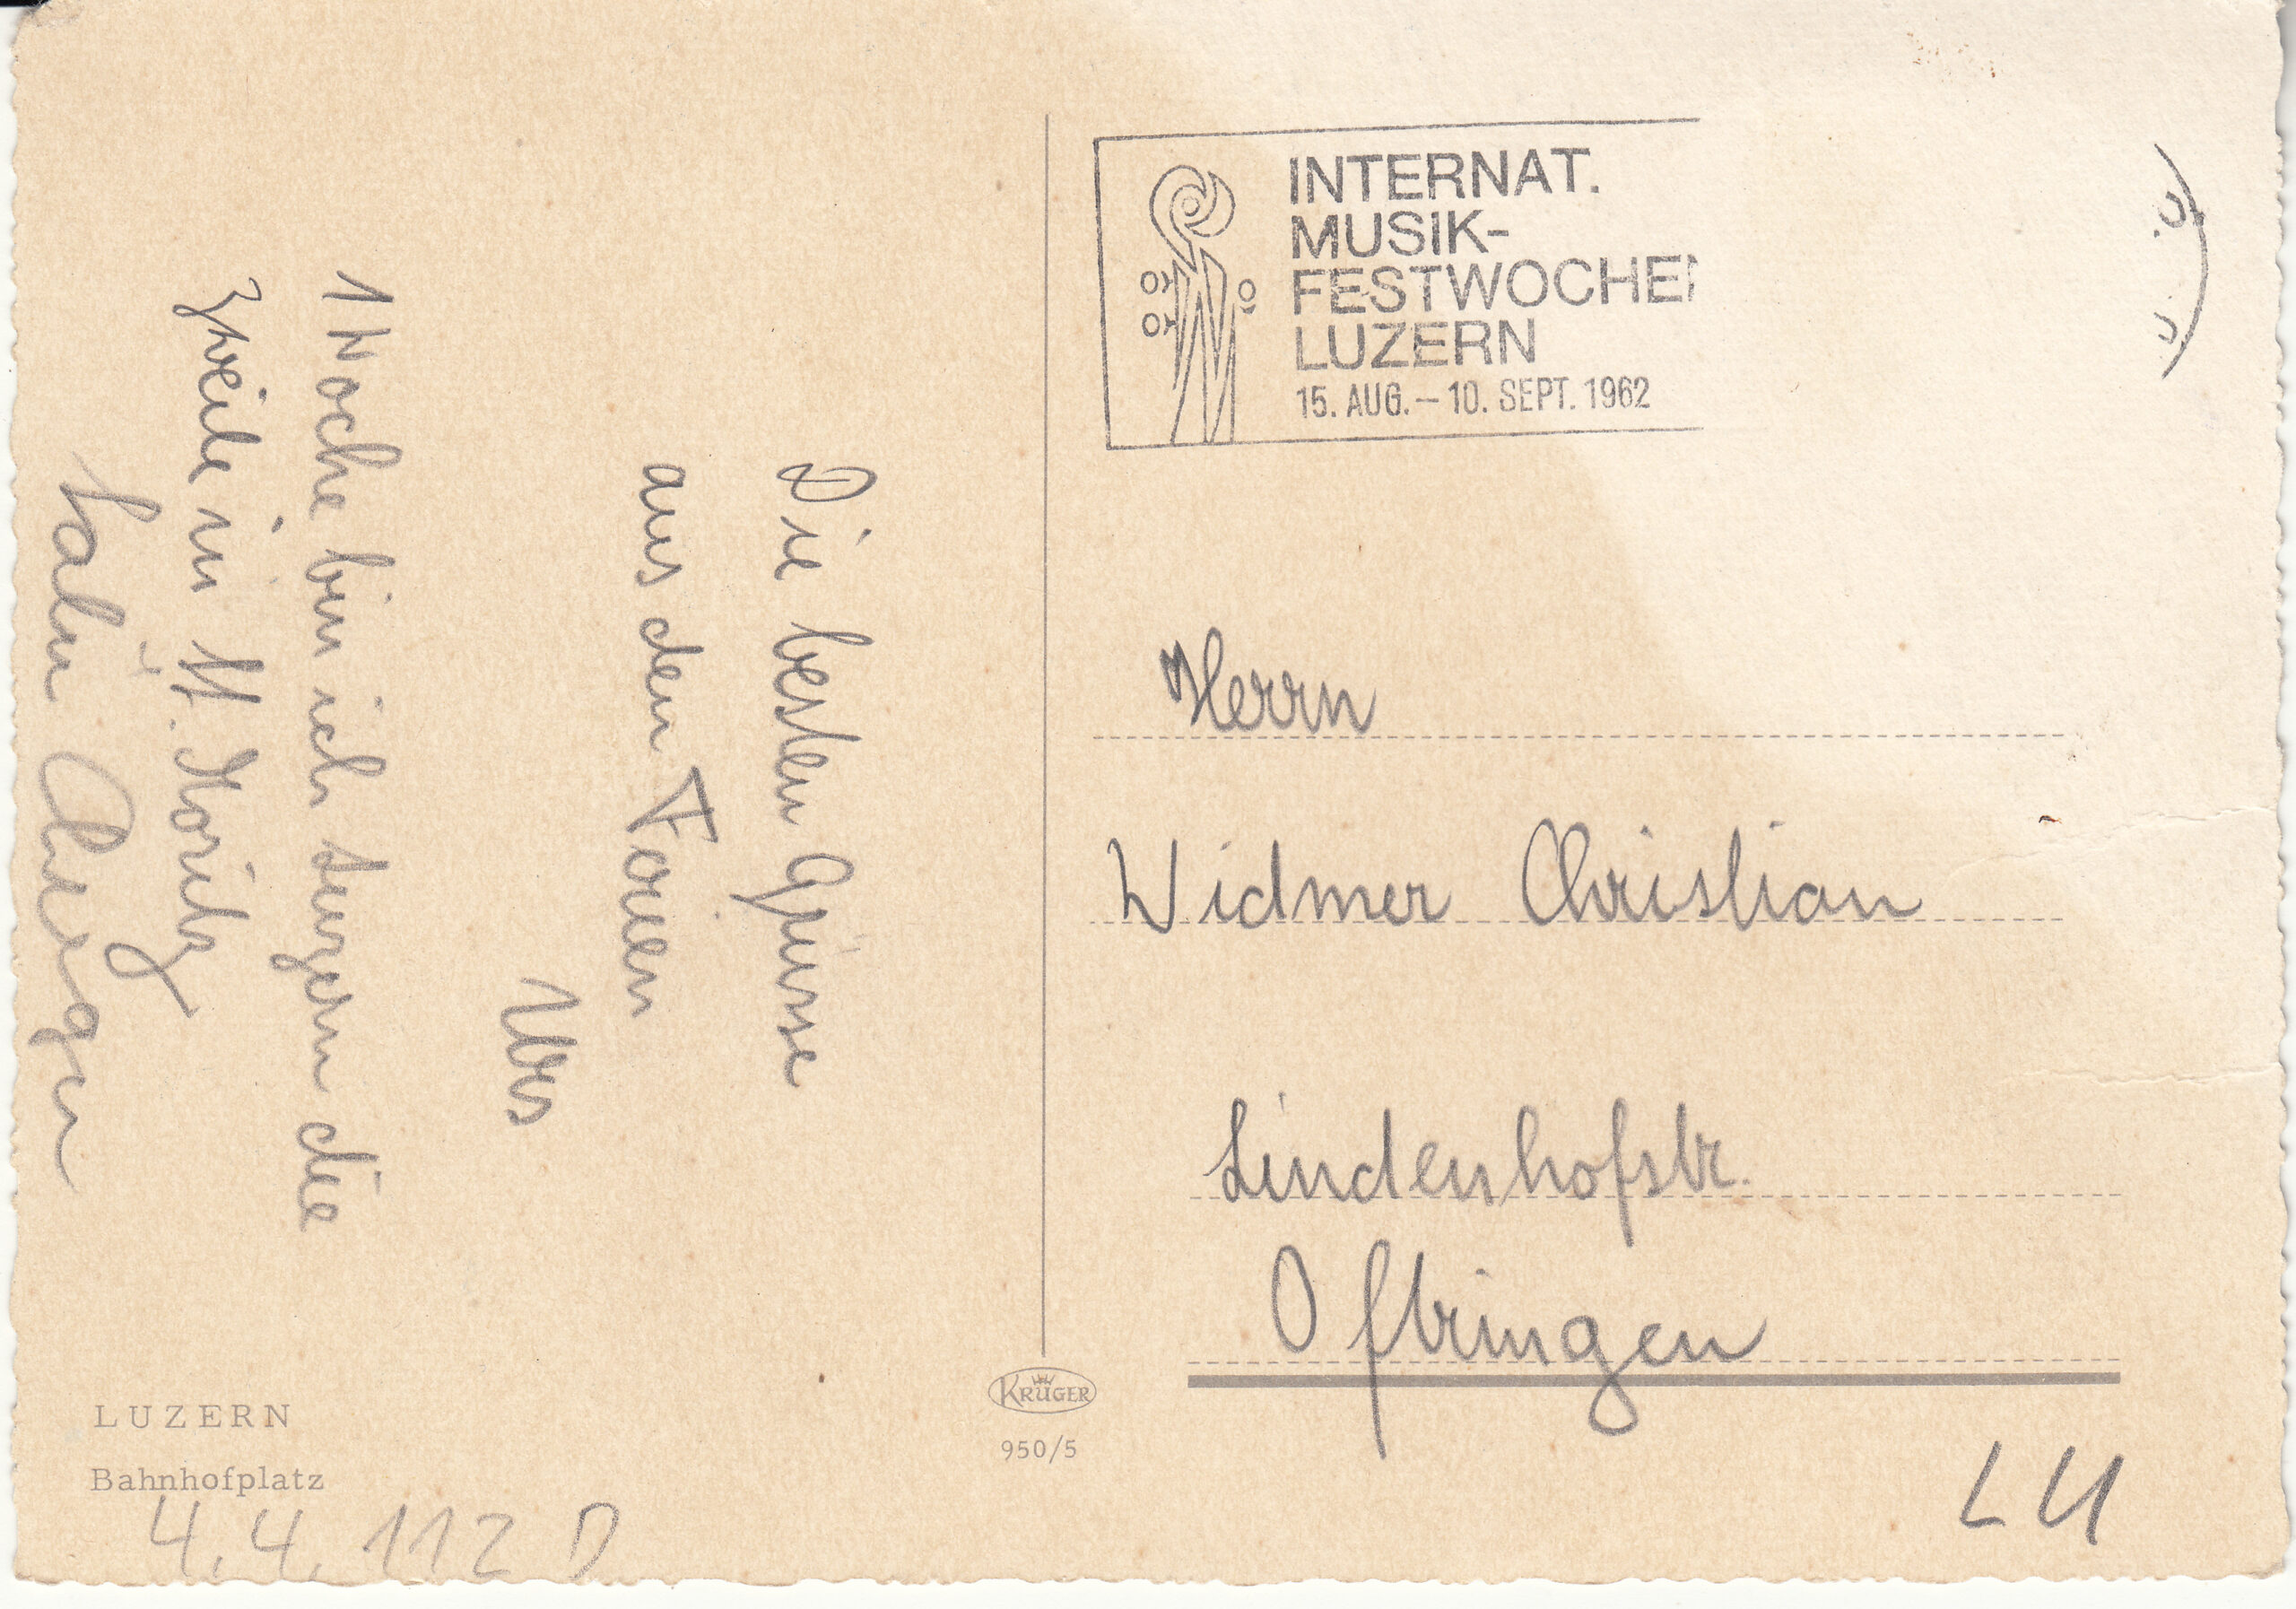 Die besten Grüsse
aus den Forien
Urs
1 Woche bin ich Luzern die
Zweite in St. Moritz
Salü
INTERNAT.
MUSIK-
FESTWOCHEN
LUZERN
15. AUG. – 10. SEPT. 1962
Herrn
Widmer Christian
Lindenhofstr.
Oftringen
LUZERN
Bahnhofplatz
KRÜGER
950/5
4.4.112 D
LU